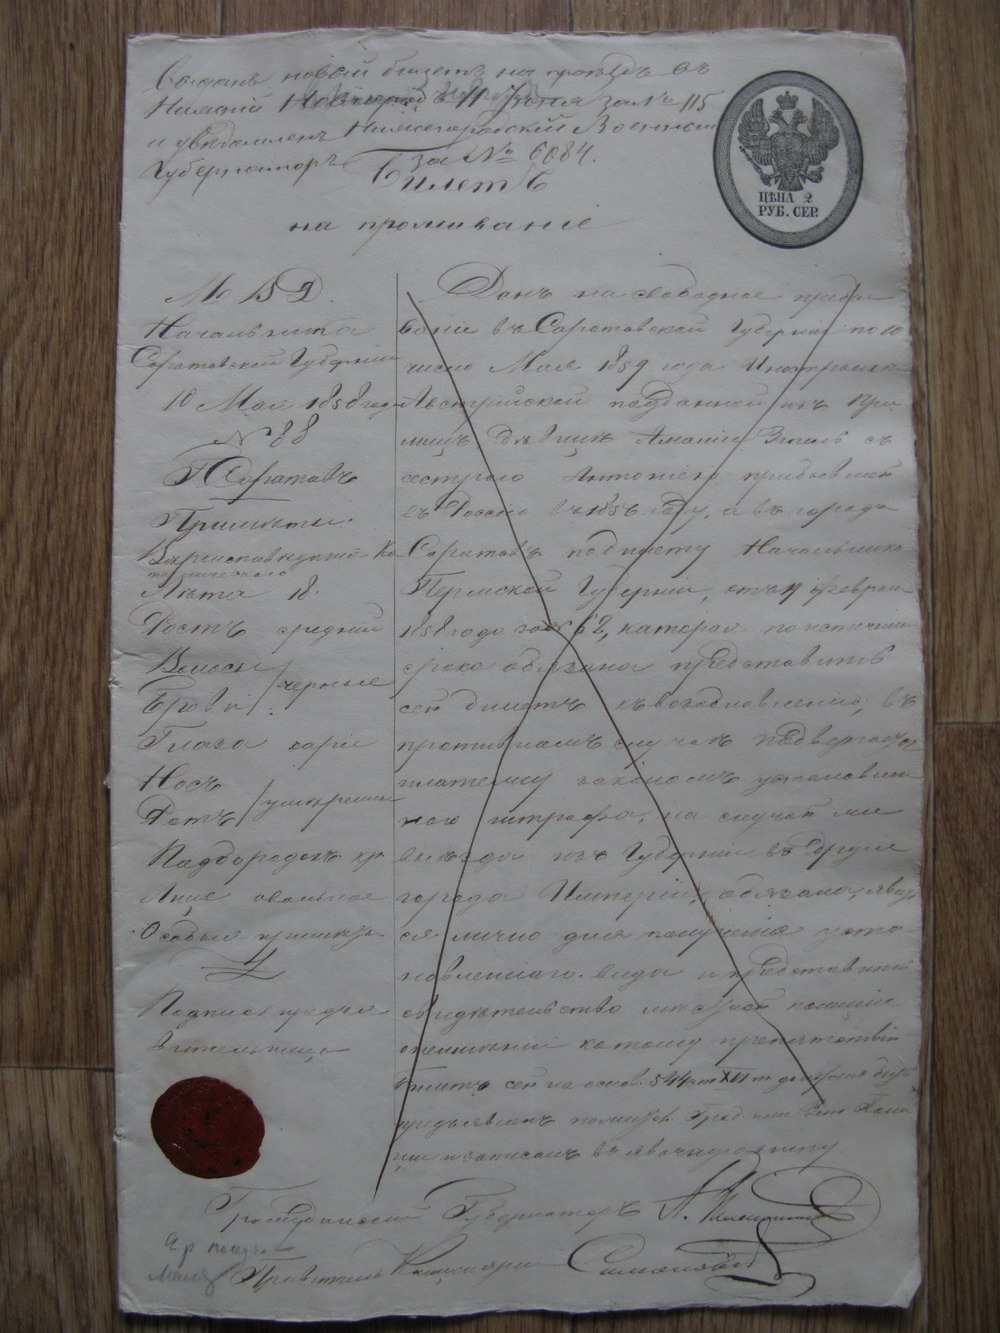 новый билетъ на проѣздъ въ
Нижній Новгородъ 11 Іюня за № 115
и увѣдомленъ Нижегородскій Военный
Губернаторъ за № 6084.
ЦѢНА 2
РУБ. СЕР.
Билетъ
на проживаніе
М В Д.
Начальника
Саратовской Губерніи
10 Мая 1858 года
№ 88
Г. Саратовъ
Примѣты:
Лѣта 18.
Ростъ средній
Волосы
черные
Брови
Глаза каріе
Носъ
умѣренные
Ротъ
Подбородокъ кр
Лице овальное
Особыя примѣты
Подпись предъя
вительницы
Данъ на свободное пребы
ваніе въ Саратовской Губерніи по 10
число Мая 1859 года Иностранкѣ
Австрійской подданной изъ
дѣвицѣ Амаліи съ
сестрою Антоніею прибывшей
въ Россію въ 185 году, а въ городъ
Саратовъ по билету Начальника
Пермской Губерніи, отъ 11 Февраля
1858 года за № 62, которая по истеченіи
срока обязана представить
сей билетъ къ возобновленію, въ
противномъ случаѣ подвергается
платежу закономъ установлен
наго штрафа, на случай же
выѣзда изъ Губерніи въ другіе
города Имперіи, обязана, явить
ся лично для полученія уста
новленнаго вида и представить
свидѣтельство мѣстной полиціи
о неимѣніи къ тому препятствій
Билетъ сей на основ. 544 ст XIV т долженъ быть
предъявленъ
и записанъ въ явочную книгу
Гражданскій Губернаторъ
Правитель Канцеляріи